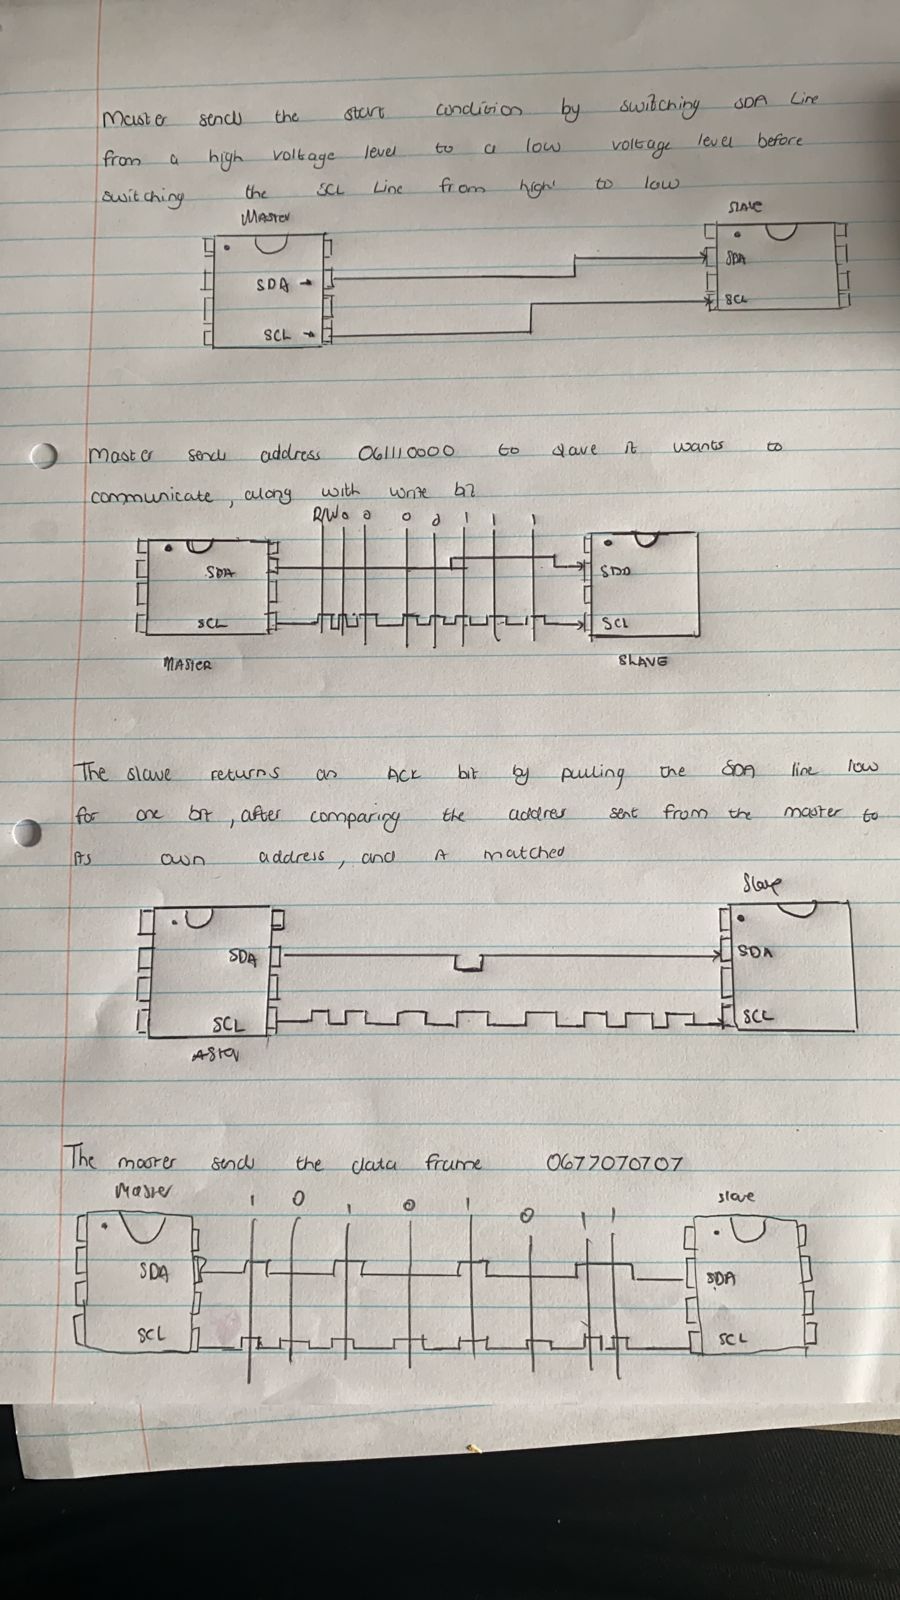 Master sends the start condition by switching SDA Line
from a high voltage level to a low voltage level before
switching the SCL Line from high to low
MASTER
SLAVE
SDA
SDA
SCL
SCL
Master sends address 0b1110000 to slave it wants to
communicate, along with write bit
R/W 0 0 0 0 1 1 1
SDA
SDA
SCL
SCL
MASTER
SLAVE
The slave returns an ACK bit by pulling the SDA line low
for one bit, after comparing the address sent from the master to
its own address, and it matched
Slave
SDA
SDA
SCL
SCL
ASTER
The master sends the data frame 0b11010101
Master
1 0 1 0 1 0 1 1
slave
SDA
SDA
SCL
SCL